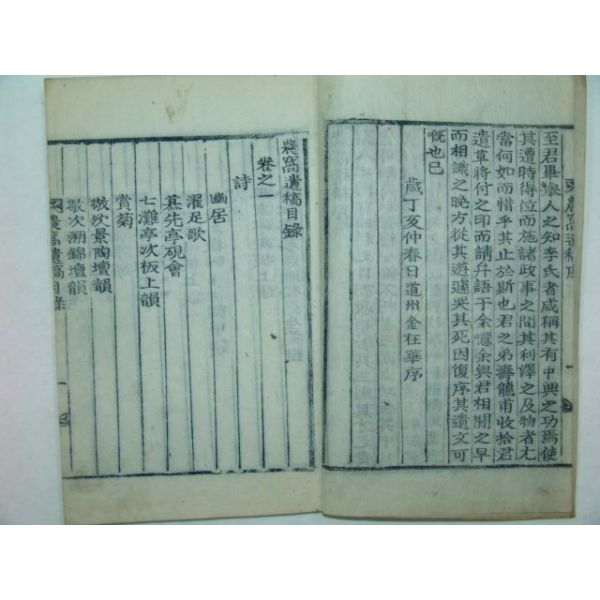 至君畢擧人之知李氏者咸稱其有中興之功焉使
其遭時得位而施諸政事之間其利澤之及物者尤
當何如而惜乎其止於斯也君之弟壽龍甫收拾君
遺草將付之印而請弁語于余噫余與君相聞之早
而相識之晩方從其遊遽哭其死因復序其遺文可
慨也已
歲丁亥仲春日道州金在華序
農窩遺稿序
農窩遺稿目錄
卷之一
詩
幽居
濯足歌
慕先亭硯會
七灘亭次板上韻
賞菊
敬次景陶壇韻
敬次溯錦壇韻
農窩遺稿目錄
一